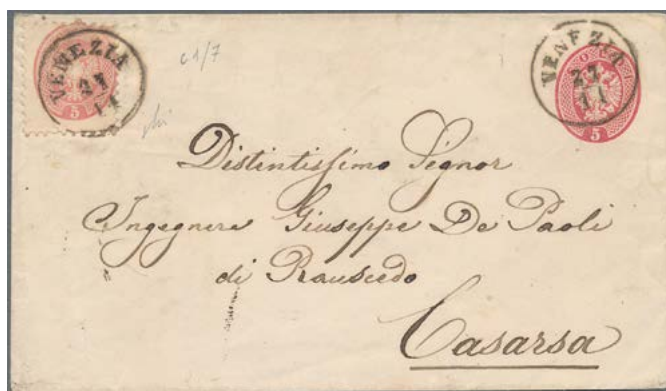 VENEZIA
27
11
5
c1/7
VENEZIA
27
11
SOLDI
5
Distintissimo Signor
Ingegnere Giuseppe De Paoli
di Rauscedo
Casarsa